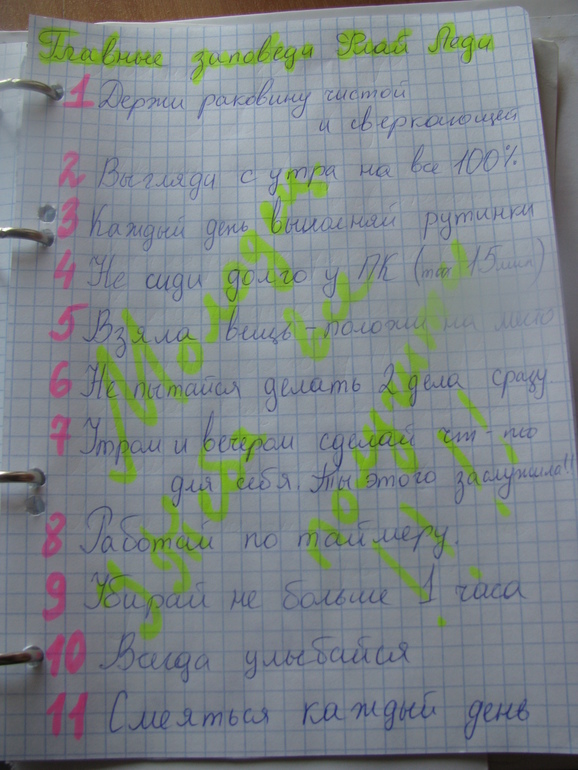 Главные заповеди Флай Леди
1 Держи раковину чистой
и сверкающей
2 Выгляди с утра на все 100%
3 Каждый день выполняй рутинки
4 Не сиди долго у ПК (max 15 мин)
5 Взяла вещь - положи на место
6 Не пытайся делать 2 дела сразу.
7 Утром и вечером сделай что-то
для себя. Ты этого заслужила!!
8 Работай по таймеру.
9 Убирай не больше 1 часа
10 Всегда улыбайся
11 Смеяться каждый день
Молодец
У тебя все
получится!!!